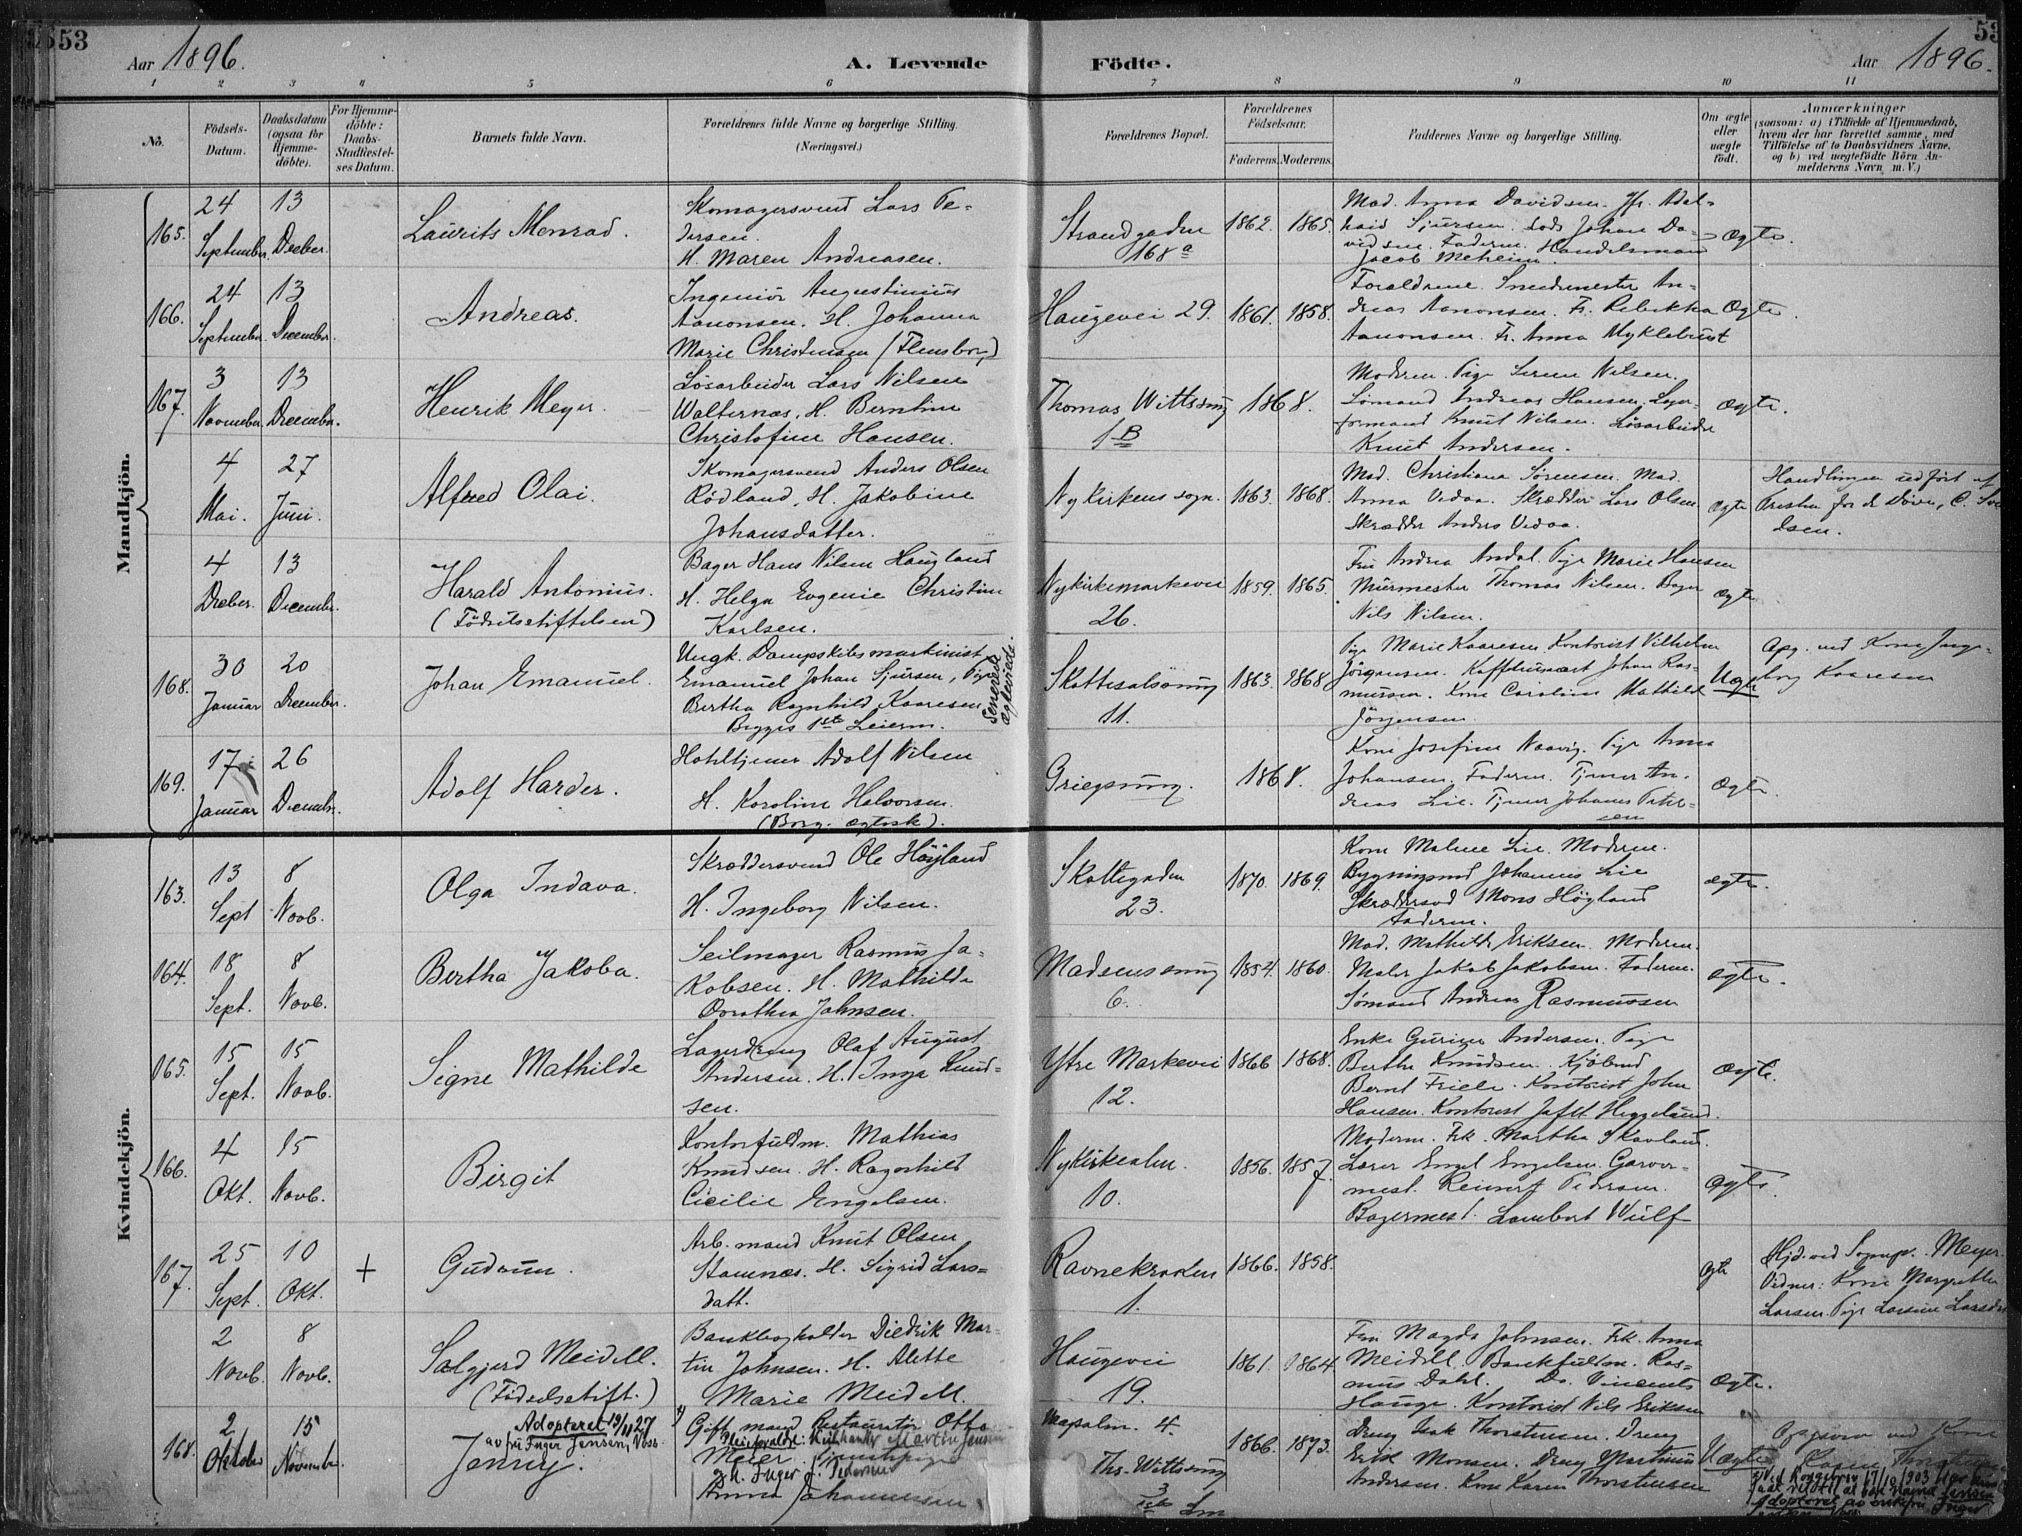 53
Aar 1896.
A. Levende
Födte.
Aar 1896.
53
1 2 3 4 5 6 7 8 9 10 11
No.
Födsels-Datum.
Daabsdatum (ogsaa for Hjemme-döbte).
For Hjemme-döbte: Daabs-Stadfæstel-ses Datum.
Barnets fulde Navn.
Forældrenes fulde Navne og borgerlige Stilling. (Næringsvei.)
Forældrenes Bopæl.
Forældrenes Födselsaar.
Faderens. Moderens.
Faddernes Navne og borgerlige Stilling.
Om ægte eller uægte födt.
Anmærkninger
(saasom: a) i Tilfælde af Hjemmedaab,
hvem der har forrettet samme, med
Tilföielse af to Daabsvidners Navne,
og b) ved uægtefödte Börn An-
melderens Navn m. V.)
Mandkjön.
165.
24 September.
13 Decber.
Laurits Menrad.
Skomagersvend Lars Pe-
dersen.
H. Maren Andreasen.
Strandgaden
168 a
1862. 1865.
Mad. Anna Davidsen. Jfr. Adel-
haid Sjursen. Lods Johan Da-
vidsen. Faderen. Handelsmand
Jacob Meheim
Ægte.
166.
24 September.
13 December.
Andreas.
Ingeniör Augustinius
Aanonsen. H. Johanna
Marie Christensen (Flensborg)
Haugevei 29.
1861. 1858.
Forældrene. Snedkermester An-
dreas Aanonsen. Fr. Rebekka
Aanonsen. Fr. Anna Myklebust
Ægte.
167.
3 November.
13 December.
Henrik Meyer.
Lösarbeider Lars Nilsen
Walternæs, H. Berntine
Christofine Hansen.
Thomas Wittssmug
1 B
1868.
Moderen. Pige Serine Nilsen.
Sömand Andreas Hansen, Lager-
formand Knut Nilsen. Lösarbeider
Knut Andersen.
Ægte.
4 Mai.
27 Juni.
Alfred Olai.
Skomagersvend Anders Olsen
Rödland, H. Jakobine
Johansdatter.
Nykirkens sogn.
1863. 1868.
Mad. Christiana Sörensen. Mad.
Anna Vedaa. Skrædder Lars Olsen
Skrædder Anders Vedaa.
Ægte
Handlingen udfört af
Presten for de Döve, C. Sve
dsen.
4 Decber.
13 December.
Harald Antonius.
(Födselsstiftelsen)
Bager Hans Nilsen Haugland
H. Helga Evgenie Christine
Karlsen.
Nykirkemarkevei
26.
1859. 1865.
Fru Andrea Andal. Pige Marie Hansen
Murmester Thomas Nilsen. Bager
Nils Nilsen.
Ægte
168.
30 Januar
20 December.
Johan Emanuel.
Ungk. Dampskibsmaskinist
Emanuel Johan Sjursen, Pige
Bertha Ragnhild Kaaresen
Begges 1ste Leierm.
Senere Ægteviede.
Skottesalsmug
11.
1863. 1868
Pige Marie Kaaresen Kontorist Vilhelm
Jörgensen. Kaffehusvært Johan Ras-
mussen. Kone Caroline Mathilde
Jörgensen
Uægte
Opg. ved Kone Inge-
borg Kaaresen
169.
17 Januar
26 Decembr.
Adolf Harder.
Hoteltjener Adolf Nilsen
H. Karoline Halvorsen.
(Borg. ægtesk).
Griegsmug.
1868.
Kone Josefine Naavig. Pige Anna
Johansen. Faderen. Tjener An-
dreas Lie. Tjener Johannes Peter-
sen
Ægte.
Kvindekjön.
163.
13 Sept
8 Novb.
Olga Indava.
Skræddersvend Ole Höyland
H. Ingeborg Nilsen.
Skottegaden
23.
1870. 1869.
Kone Malene Lie. Moderen.
Bygningssnd Johannes Lie
Skræddersvd Mons Höyland
Faderen.
ægte.
164.
18 Sept.
8 Novb.
Bertha Jakoba.
Seilmager Rasmus Ja-
kobsen. H. Mathilde
Dorothea Johnsen.
Madsenssmug
6.
1854. 1860.
Mad. Mathilde Eriksen. Moderen.
Maler Jakob Jakobsen. Faderen.
Sömand Andreas Rasmussen
ægte.
165.
15 Sept.
15 Novb.
Signe Mathilde
Lagerdreng Olaf August
Andersen. H. Inga Knud-
sen.
Ytre Markevei
12.
1866 1868.
Enke Gurine Andersen. Pige
Berthe Knudsen. Kjöbmd
Bernt Friele. Kontorist John
Hansen. Kontorist Joft Heggelund.
Ægte.
166.
4 Okt.
15 Novb.
Birgit
Kontorfuldm. Mathias
Knudsen. H. Ragnhild
Cicilie Engelsen.
Nykirkealm.
10.
1856. 1857.
Moderen. Frk. Martha Skavland.
Lærer Engel Engelsen. Garver-
mest. Reinert Pedersen.
Bagermest. Lambert Wulf
ægte.
167.
25 Sept.
10 Okt.
+
Gudrun.
Arb.mand Knut Olsen
Stamnes. H. Sigrid Lars-
datt.
Ravnekroken
1.
1866. 1858.
ægte
Hjd. ved Sognepr. Meyer.
Vidner: Kone Margrethe
Larsen. Pige Larsine Larsdr
2 Novb.
8 Novb.
Salgjerd Meidell.
(Födselsstift.)
Bankbogholder Diedrik Mar-
tin Johnsen. H. Alette
Marie Meidell
Haugevei
19.
1861. 1864.
Fru Magda Johnsen. Frk. Anna
Meidell. Bankfuldm. Ras-
mus Dahl. Do. Vincents
Hauge. Kontorist Nils Eriksen
Ægte.
168.
2 Oktober
15 November.
Adopteret 19/11 27
av fru Inger Jensen, Vbsb.
Jenny.
Gift mand Restauratör Otto
Meier.
Anna Johannessen
Nögsalm. 4.
Ths. Wittssmug
3
1866. 1873.
Dreng Isak Thorstensen. Dreng
Erik Monsen. Dreng Martinus
Andersen. Kone Karen Thorstensen
Uægte
Opgiven ved Kone
Karen Thorstensen
Ved Kongebrev 17/10 1903